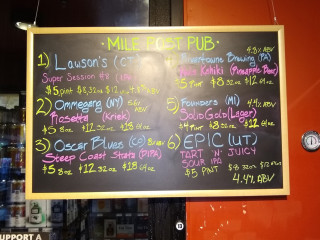 MILE POST PUB
1) Lawson's (CT)
Super Session #8 (IPA)
$5 pint $8/32oz $12
2) Ommegang (NY)
Rosetta (Kriek)
$5 8oz $12 32oz $18 64oz
3) Oscar Blues (CO)
Steep Coast Strata (DIPA)
$5 8oz $12 32oz $18 64oz
Brewing (PA) 4.9% ABV
Kahiki (Pineapple Sour)
Pint $8 32oz $12 64oz
5) Founders (MI) 4.4% ABV
Solid Gold (Lager)
$4 Pint $8 32oz $12 64oz
6) EPIC (UT)
TART 'N JUICY
SOUR IPA
$5 PINT $8 32oz $12 64oz
4.4% ABV
SUPPORT A